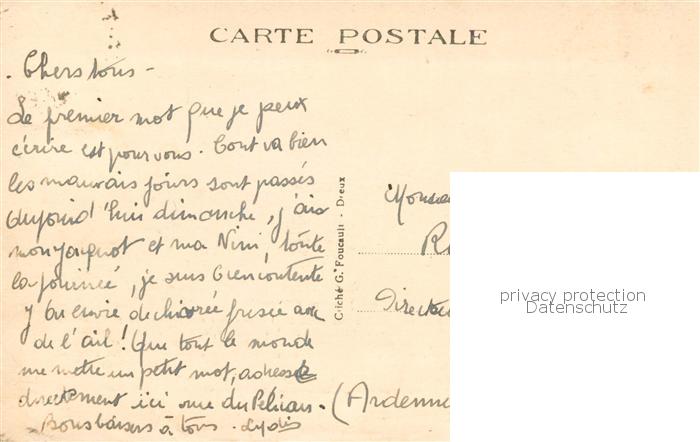 CARTE POSTALE
. Chers tous -
Le premier mot que je peux
écrire est pour vous. Tout va bien
les mauvais jours sont passés
aujourd'hui dimanche, j'ai
mon Jacquot et ma Nini, toute
la journée, je suis bien contente
j'ai envie de chicorée frisée avec
de l'ail! Que tout le monde
me mette un petit mot, adressé
directement ici rue du Pélican.
Bons baisers à tous.
Cliché G. Foucault - Dreux
Monsieu
Directeu
(Ardenne
privacy protection
Datenschutz